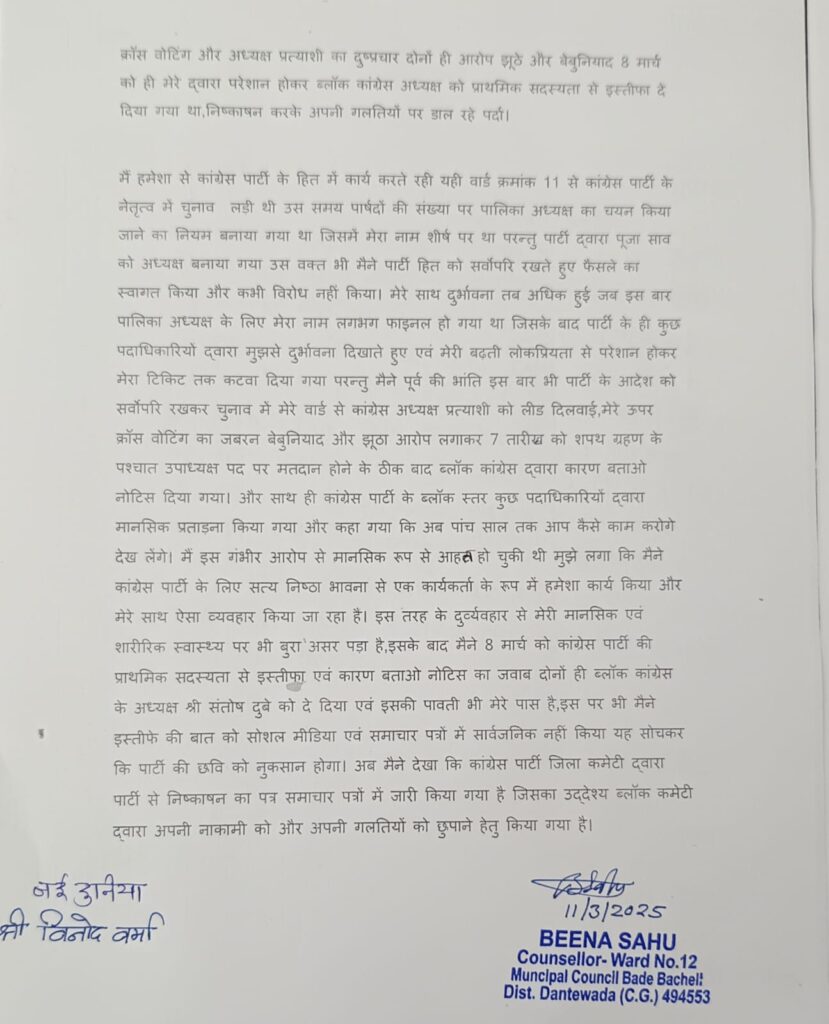 क्रॉस वोटिंग और अध्यक्ष प्रत्याशी का दुष्प्रचार दोनों ही आरोप झूठे और बेबुनियाद 8 मार्च
को ही मेरे द्वारा परेशान होकर ब्लॉक कांग्रेस अध्यक्ष को प्राथमिक सदस्यता से इस्तीफा दे
दिया गया था,निष्काषन करके अपनी गलतियों पर डाल रहे पर्दा।
मैं हमेशा से कांग्रेस पार्टी के हित में कार्य करते रही यही वार्ड क्रमांक 11 से कांग्रेस पार्टी के
नेतृत्व में चुनाव लड़ी थी उस समय पार्षदों की संख्या पर पालिका अध्यक्ष का चयन किया
जाने का नियम बनाया गया था जिसमें मेरा नाम शीर्ष पर था परन्तु पार्टी द्वारा पूजा साव
को अध्यक्ष बनाया गया उस वक्त भी मैने पार्टी हित को सर्वोपरि रखते हुए फैसले का
स्वागत किया और कभी विरोध नहीं किया। मेरे साथ दुर्भावना तब अधिक हुई जब इस बार
पालिका अध्यक्ष के लिए मेरा नाम लगभग फाइनल हो गया था जिसके बाद पार्टी के ही कुछ
पदाधिकारियों द्वारा मुझसे दुर्भावना दिखाते हुए एवं मेरी बढ़ती लोकप्रियता से परेशान होकर
मेरा टिकिट तक कटवा दिया गया परन्तु मैने पूर्व की भांति इस बार भी पार्टी के आदेश को
सर्वोपरि रखकर चुनाव में मेरे वार्ड से कांग्रेस अध्यक्ष प्रत्याशी को लीड दिलवाई,मेरे ऊपर
क्रॉस वोटिंग का जबरन बेबुनियाद और झूठा आरोप लगाकर 7 तारीख को शपथ ग्रहण के
पश्चात उपाध्यक्ष पद पर मतदान होने के ठीक बाद ब्लॉक कांग्रेस द्वारा कारण बताओ
नोटिस दिया गया। और साथ ही कांग्रेस पार्टी के ब्लॉक स्तर कुछ पदाधिकारियों द्वारा
मानसिक प्रताड़ना किया गया और कहा गया कि अब पांच साल तक आप कैसे काम करोगे
देख लेंगे। मैं इस गंभीर आरोप से मानसिक रूप से आहत हो चुकी थी मुझे लगा कि मैने
कांग्रेस पार्टी के लिए सत्य निष्ठा भावना से एक कार्यकर्ता के रूप में हमेशा कार्य किया और
मेरे साथ ऐसा व्यवहार किया जा रहा है। इस तरह के दुर्व्यवहार से मेरी मानसिक एवं
शारीरिक स्वास्थ्य पर भी बुरा असर पड़ा है,इसके बाद मैने 8 मार्च को कांग्रेस पार्टी की
प्राथमिक सदस्यता से इस्तीफा एवं कारण बताओ नोटिस का जवाब दोनों ही ब्लॉक कांग्रेस
के अध्यक्ष श्री संतोष दुबे को दे दिया एवं इसकी पावती भी मेरे पास है,इस पर भी मैने
इस्तीफे की बात को सोशल मीडिया एवं समाचार पत्रों में सार्वजनिक नहीं किया यह सोचकर
कि पार्टी की छवि को नुकसान होगा। अब मैने देखा कि कांग्रेस पार्टी जिला कमेटी द्वारा
पार्टी से निष्काषन का पत्र समाचार पत्रों में जारी किया गया है जिसका उद्देश्य ब्लॉक कमेटी
द्वारा अपनी नाकामी को और अपनी गलतियों को छुपाने हेतु किया गया है।
नई दुनिया
श्री विनोद वर्मा
11/3/2025
BEENA SAHU
Counsellor- Ward No.12
Muncipal Council Bade Bacheli
Dist. Dantewada (C.G.) 494553